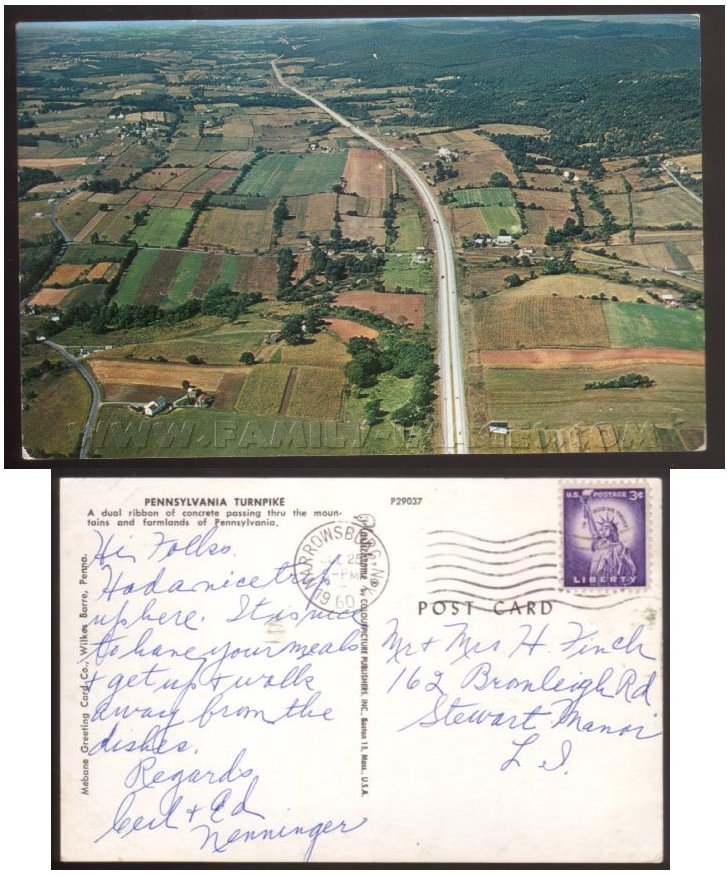 WWW.FAMILY-IMAGES.COM
PENNSYLVANIA TURNPIKE
A dual ribbon of concrete passing thru the moun-
tains and farmlands of Pennsylvania.
P29037
Mebane Greeting Card Co., Wilkes Barre, Penna.
by COLOURPICTURE PUBLISHERS, INC., Boston 15, Mass., U.S.A.
NARROWSBURG N.Y.
25
PM
1960
U.S. POSTAGE 3¢
IN GOD WE TRUST
LIBERTY
POST CARD
Hi Folks.
Had a nice trip
up here. It is nice
to have your meals
+ get up + walk
away from the
dishes.
Regards
Ceil + Ed
Nenninger
Mr + Mrs H. Finch
162 Bromleigh Rd
Stewart Manor
L I.